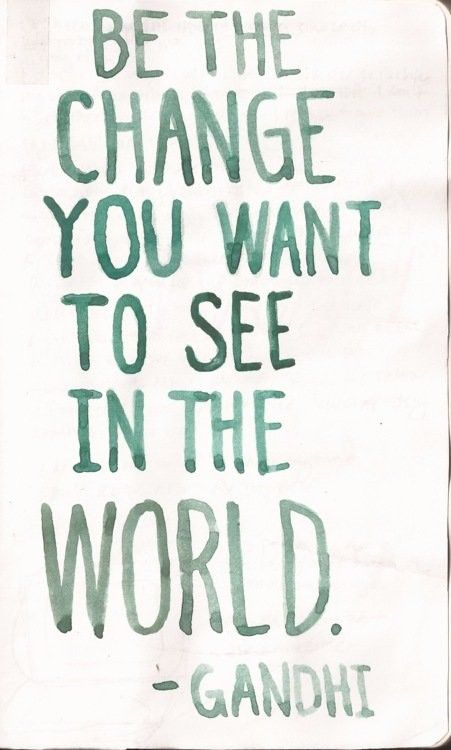 BE THE
CHANGE
YOU WANT
TO SEE
IN THE
WORLD.
- GANDHI